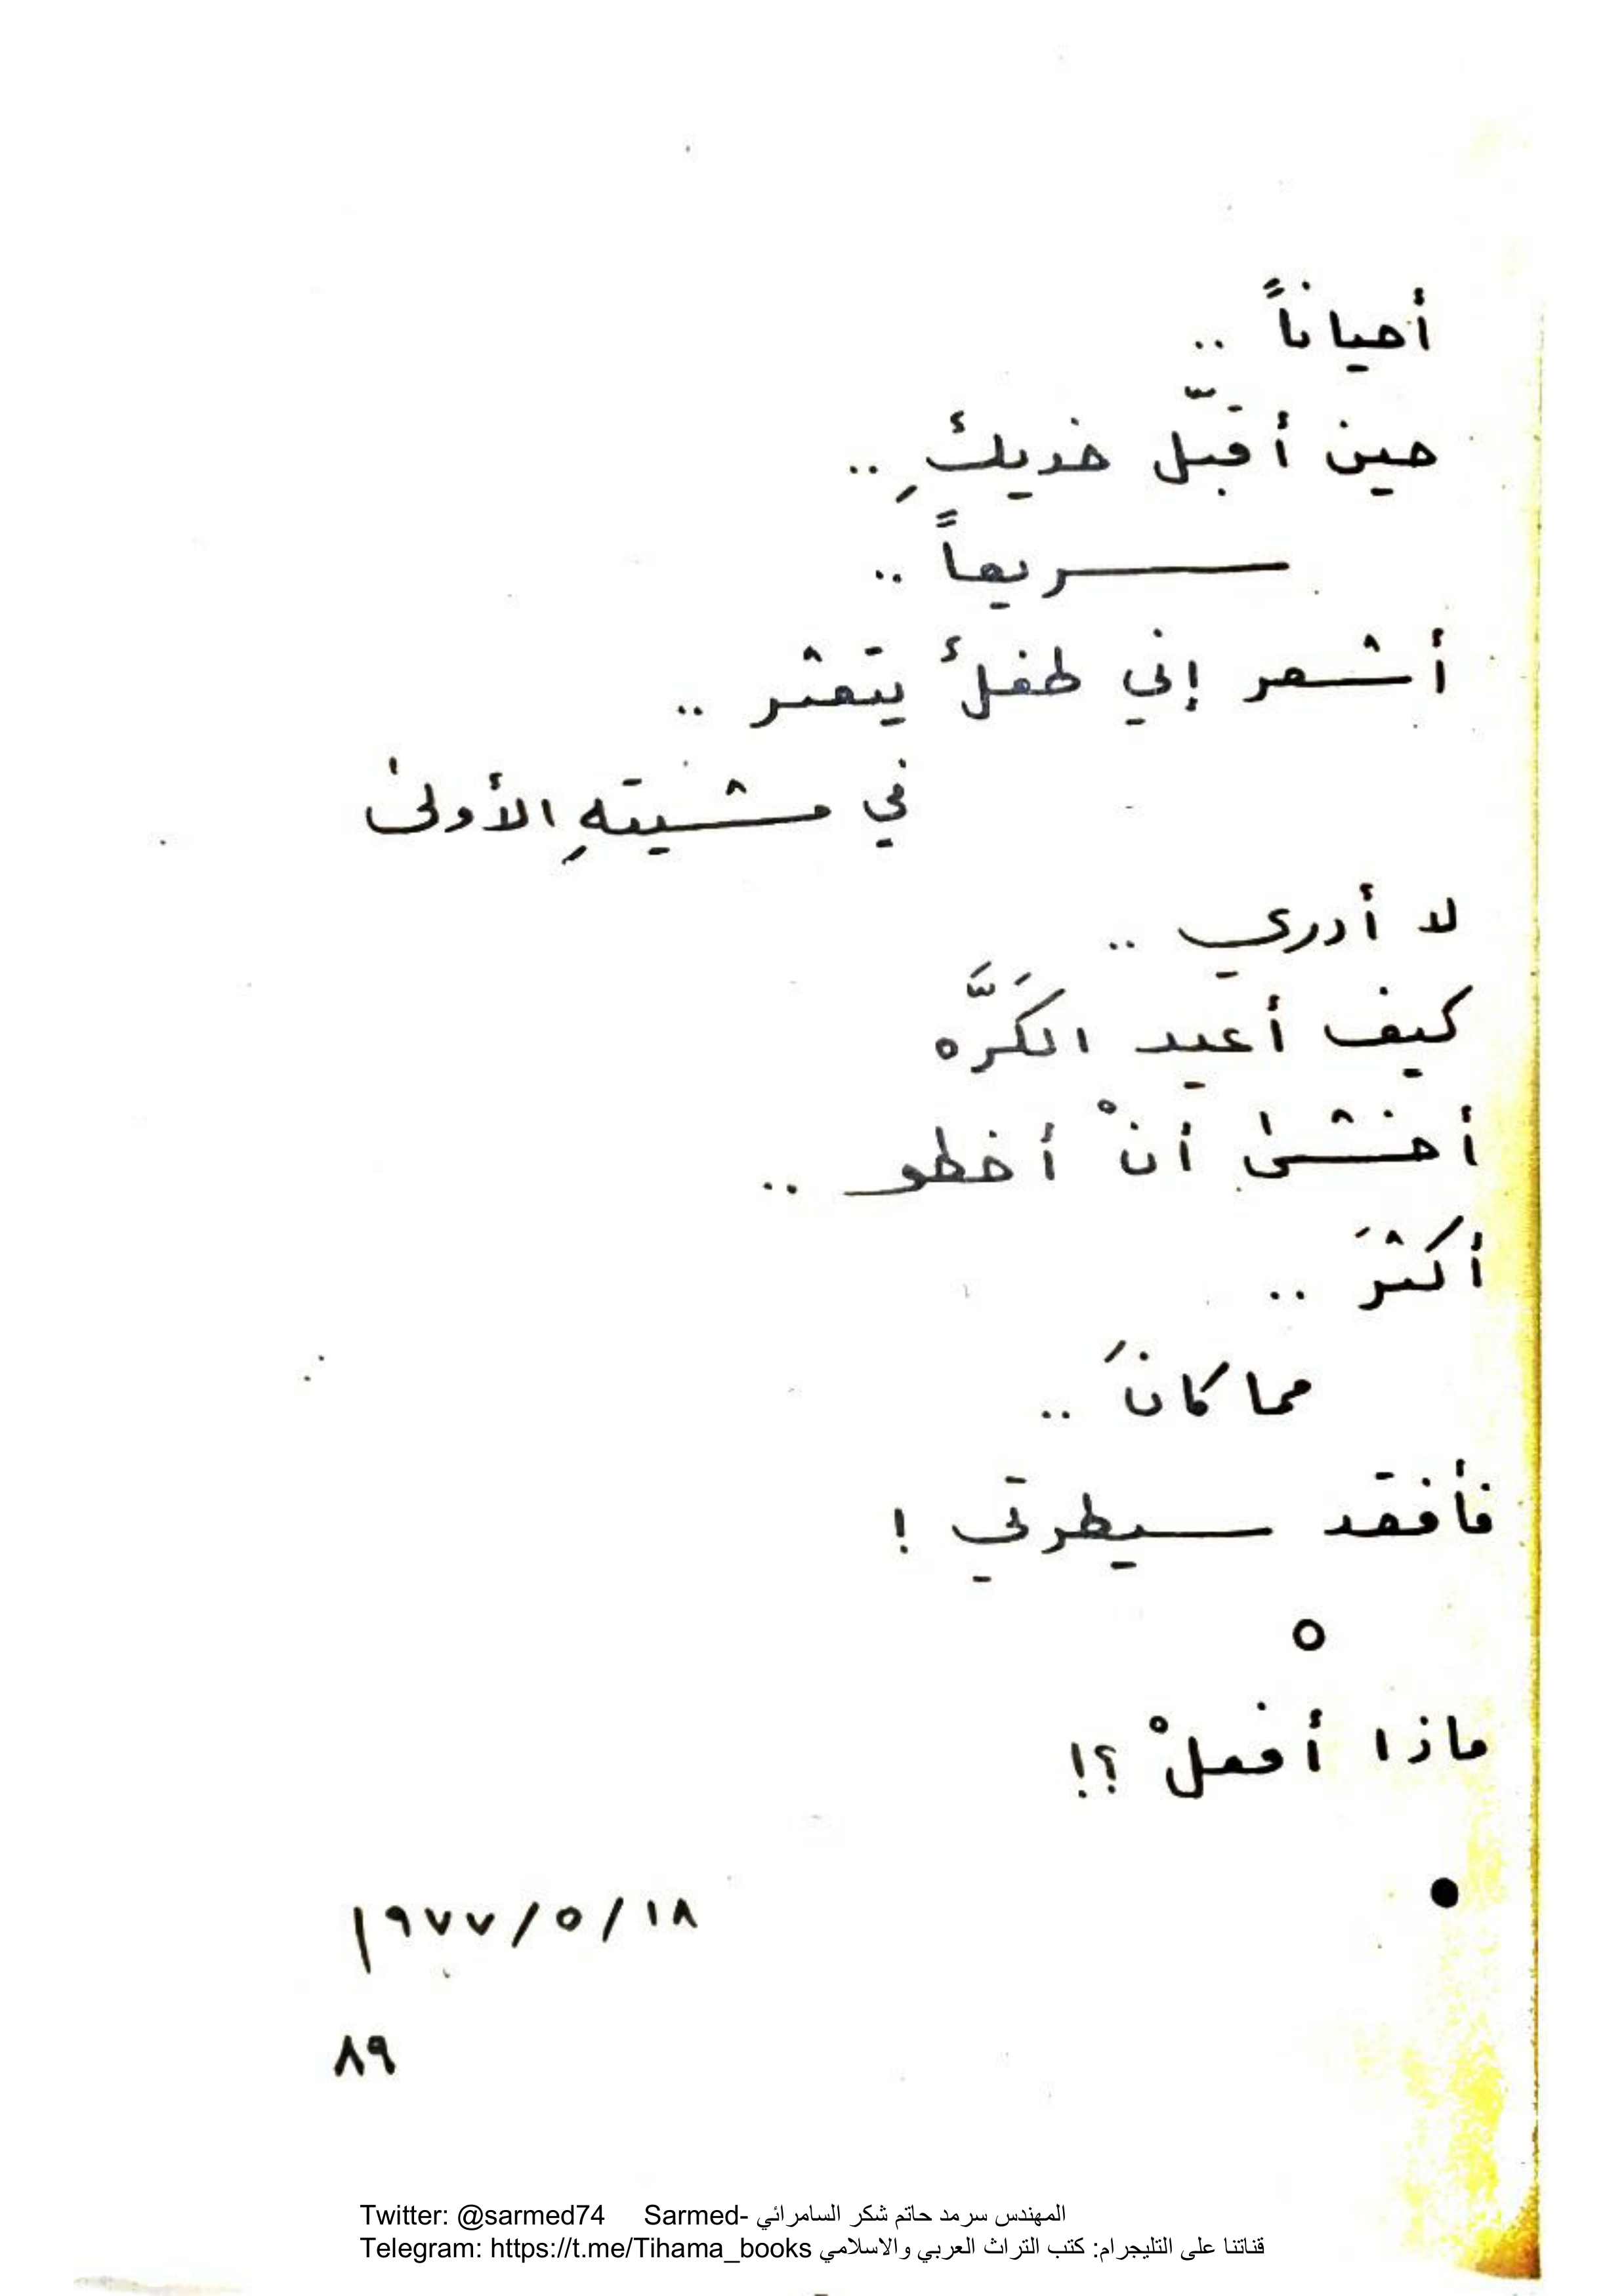 أحياناً ..
حين أقبّل خديكِ ..
سريعاً ..
أشعر إني طفلٌ يتعثر ..
في مشيتهِ الأولىٰ
لا أدري ..
كيف أعيد الكَرَّه
أخشىٰ أنْ أخطو ..
أكثرَ ..
مما كانَ ..
فأفقد سيطرتي !
ماذا أفعلْ ؟!
١٩٧٧/٥/١٨
٨٩
Twitter: @sarmed74 Sarmed- المهندس سرمد حاتم شكر السامرائي
Telegram: https://t.me/Tihama_books قناتنا على التليجرام: كتب التراث العربي والاسلامي